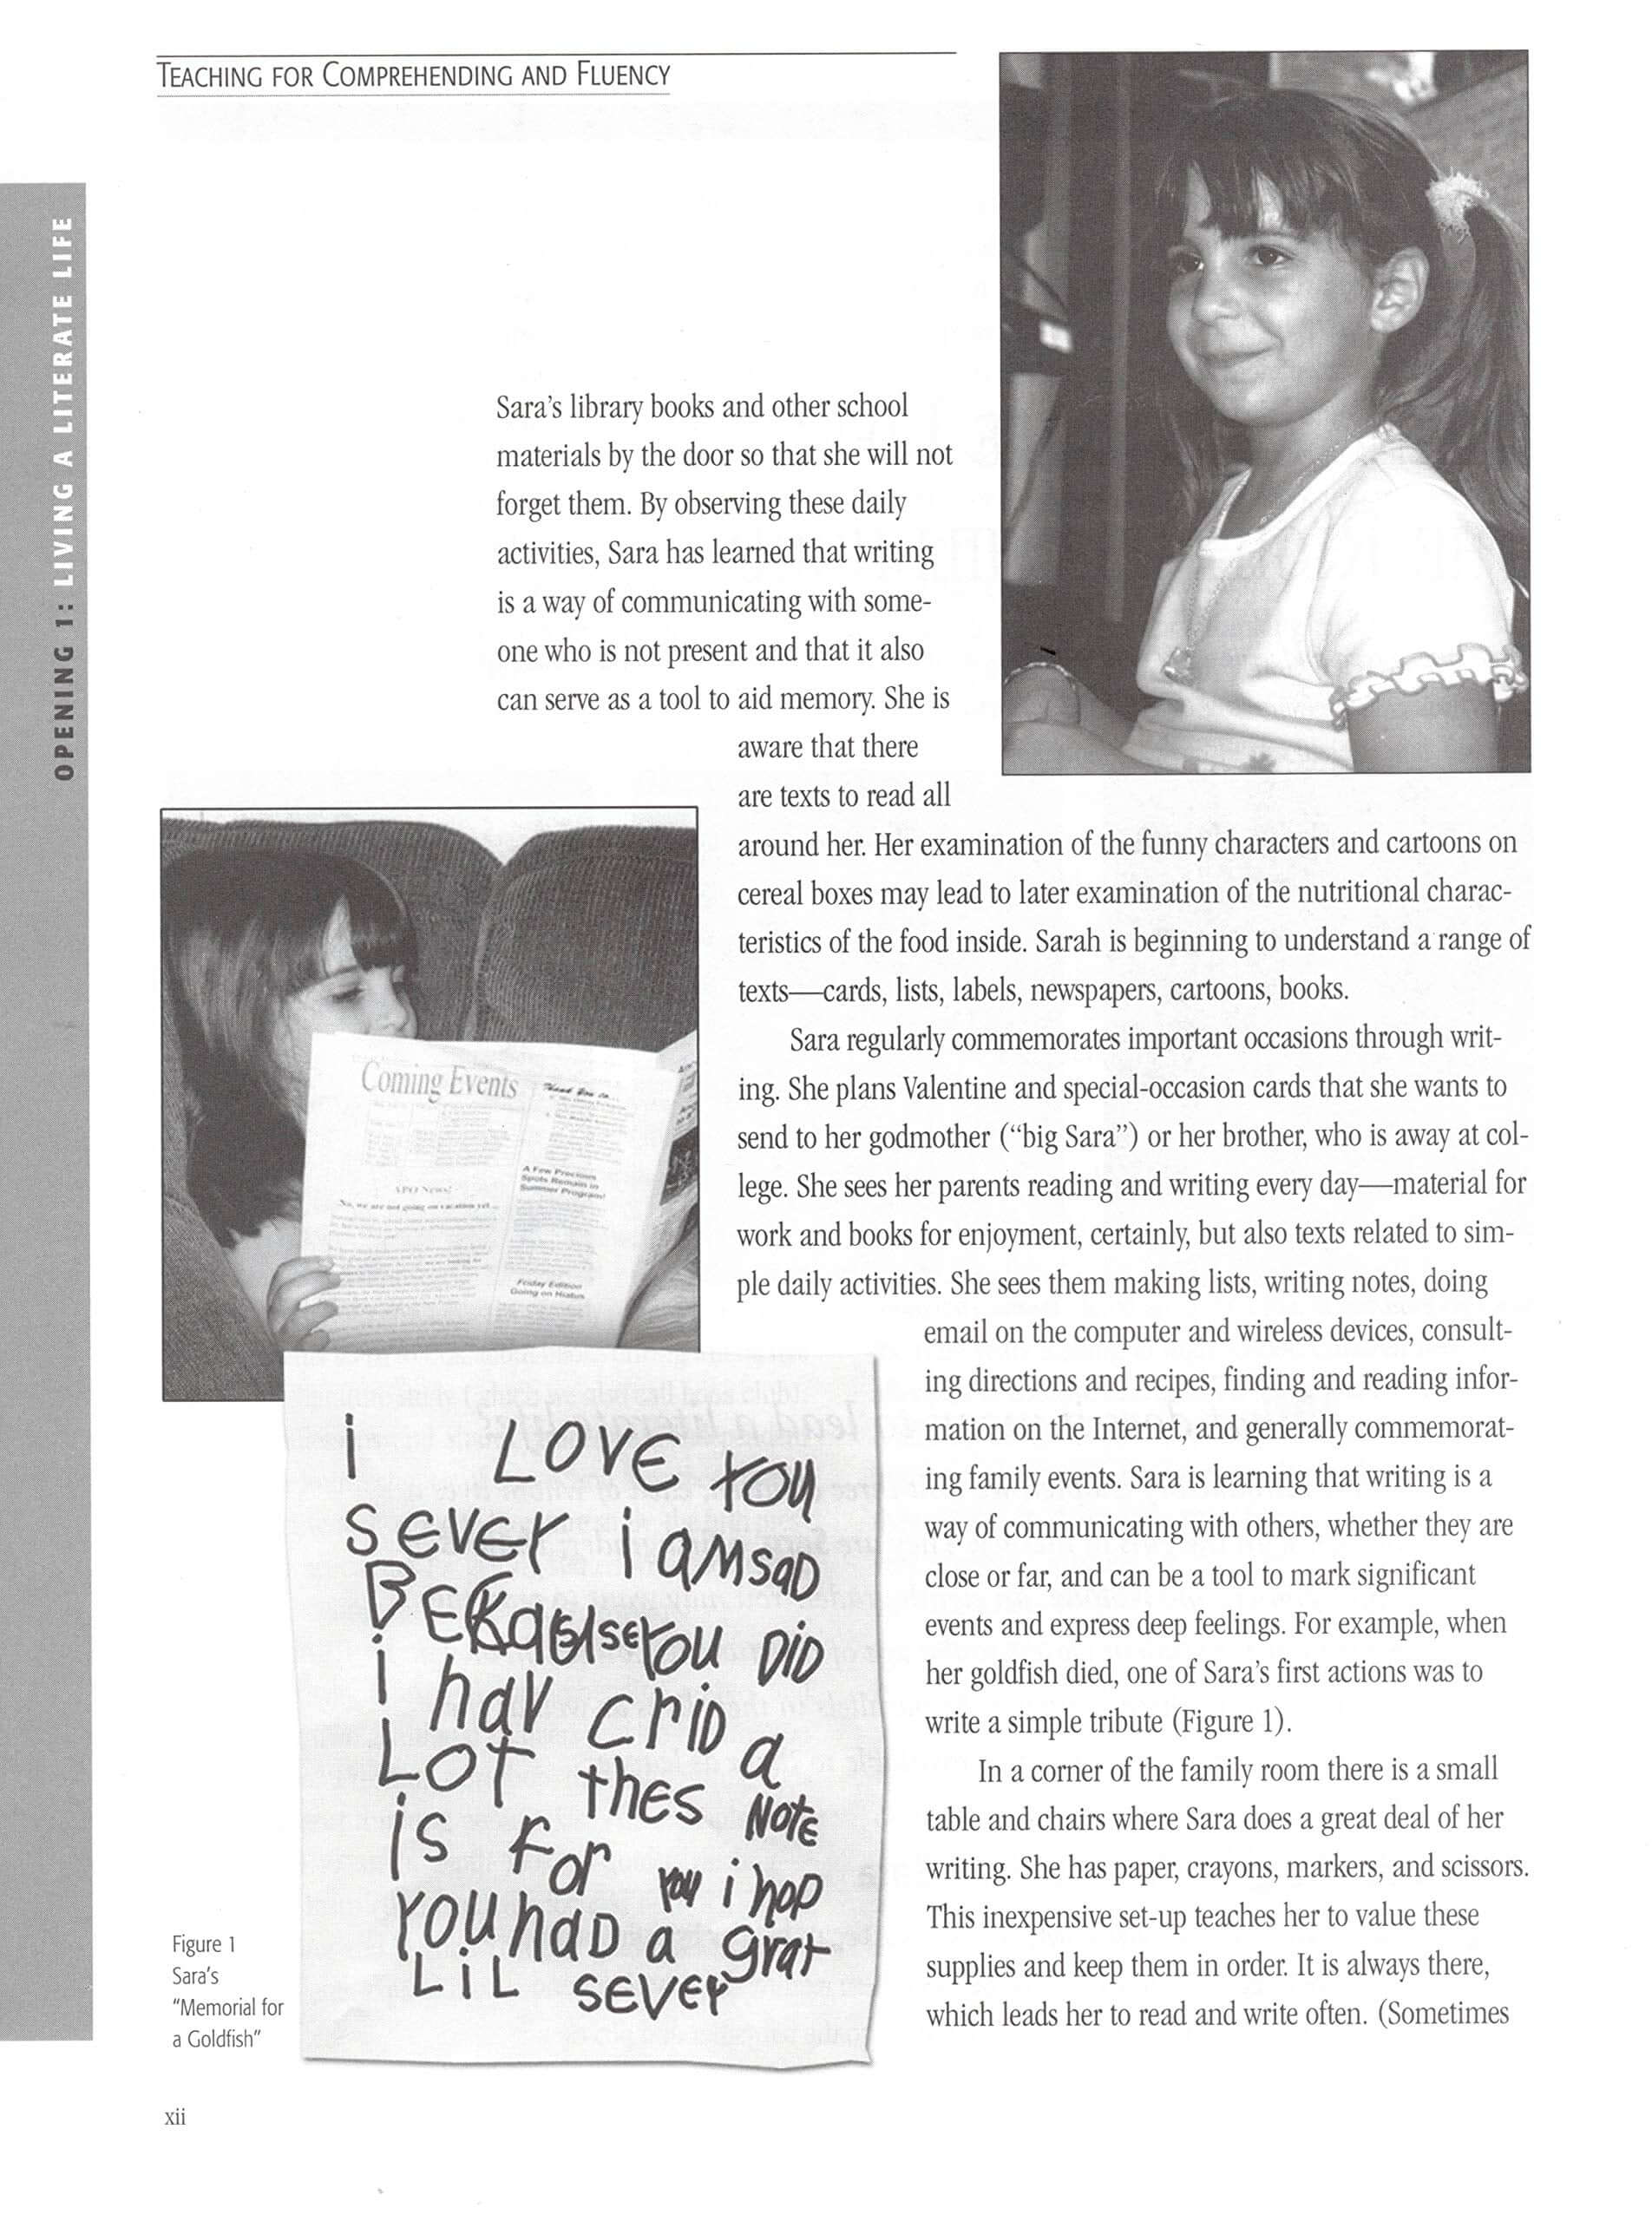 TEACHING FOR COMPREHENDING AND FLUENCY
OPENING 1: LIVING A LITERATE LIFE
Sara's library books and other school
materials by the door so that she will not
forget them. By observing these daily
activities, Sara has learned that writing
is a way of communicating with some-
one who is not present and that it also
can serve as a tool to aid memory. She is
aware that there
are texts to read all
around her. Her examination of the funny characters and cartoons on
cereal boxes may lead to later examination of the nutritional charac-
teristics of the food inside. Sarah is beginning to understand a range of
texts—cards, lists, labels, newspapers, cartoons, books.
Sara regularly commemorates important occasions through writ-
ing. She plans Valentine and special-occasion cards that she wants to
send to her godmother (“big Sara”) or her brother, who is away at col-
lege. She sees her parents reading and writing every day—material for
work and books for enjoyment, certainly, but also texts related to sim-
ple daily activities. She sees them making lists, writing notes, doing
email on the computer and wireless devices, consult-
ing directions and recipes, finding and reading infor-
mation on the Internet, and generally commemorat-
ing family events. Sara is learning that writing is a
way of communicating with others, whether they are
close or far, and can be a tool to mark significant
events and express deep feelings. For example, when
her goldfish died, one of Sara's first actions was to
write a simple tribute (Figure 1).
In a corner of the family room there is a small
table and chairs where Sara does a great deal of her
writing. She has paper, crayons, markers, and scissors.
This inexpensive set-up teaches her to value these
supplies and keep them in order. It is always there,
which leads her to read and write often. (Sometimes
Coming Events
Thank You to...
A Few Precious
Spots Remain in
Summer Program!
APO News!
No, we are not going on vacation yet...
Friday Edition
Going on Hiatus
i LOVE YOU
SEVEr i aMsaD
YOU DiD
i haV CriD a
LOT thes NOtE
is For you i hop
YOU haD a grat
LiL SEVEr
Figure 1
Sara's
"Memorial for
a Goldfish"
xii